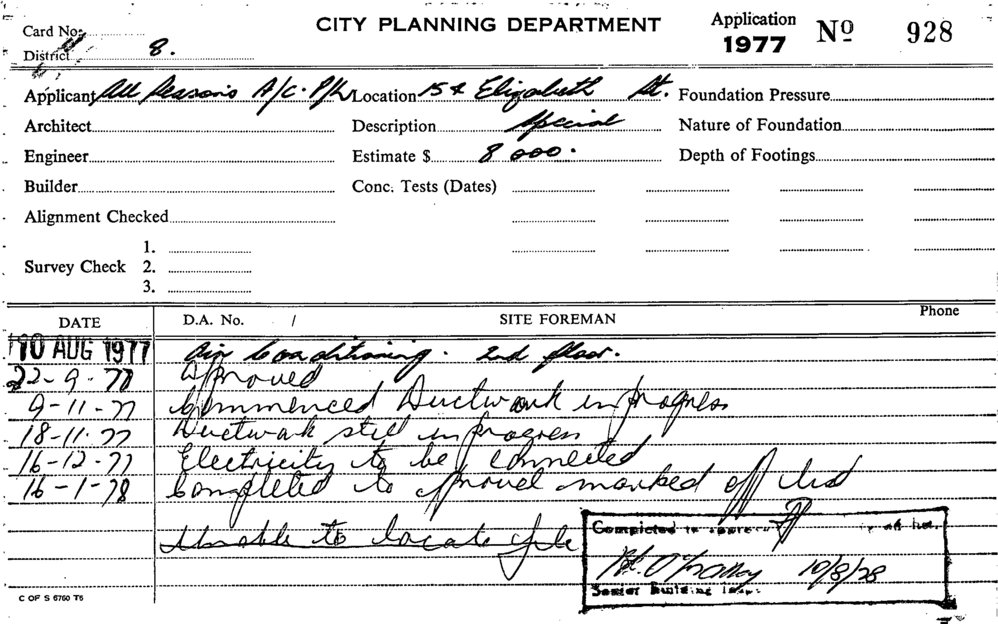 Card No.
CITY PLANNING DEPARTMENT
Application 1977 Nº 928
District 8.
Applicant All Seasons A/C. P/L Location 154 Elizabeth St. Foundation Pressure
Architect Description Special Nature of Foundation
Engineer Estimate $ 8 000. Depth of Footings
Builder Conc. Tests (Dates)
Alignment Checked
1.
Survey Check 2.
3.
DATE D.A. No. / SITE FOREMAN Phone
10 AUG 1977 Air Conditioning. 2nd floor.
22-9-77 Approved
9-11-77 Commenced Ductwork in progress
18-11-77 Ductwork still in progress
16-12-77 Electricity to be connected
16-1-78 Completed to approval marked off list
Unable to locate file
Completed to off list.
10/8/78
Senior Building
C OF S 6760 T6